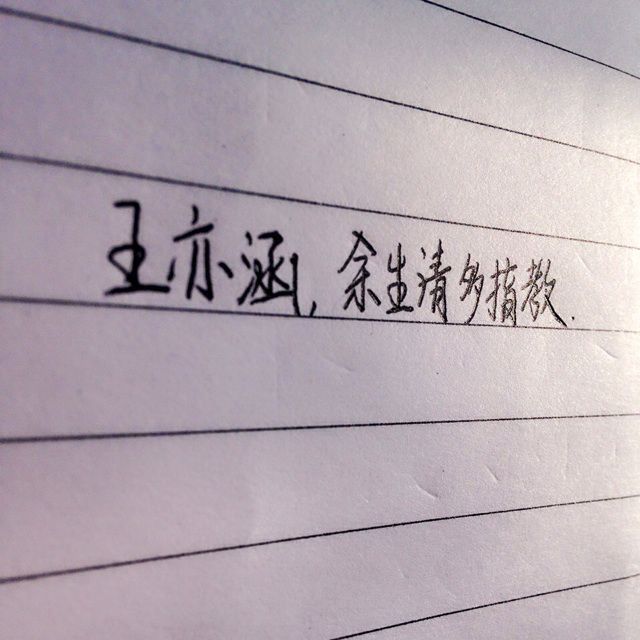 王亦涵,余生清多指教.